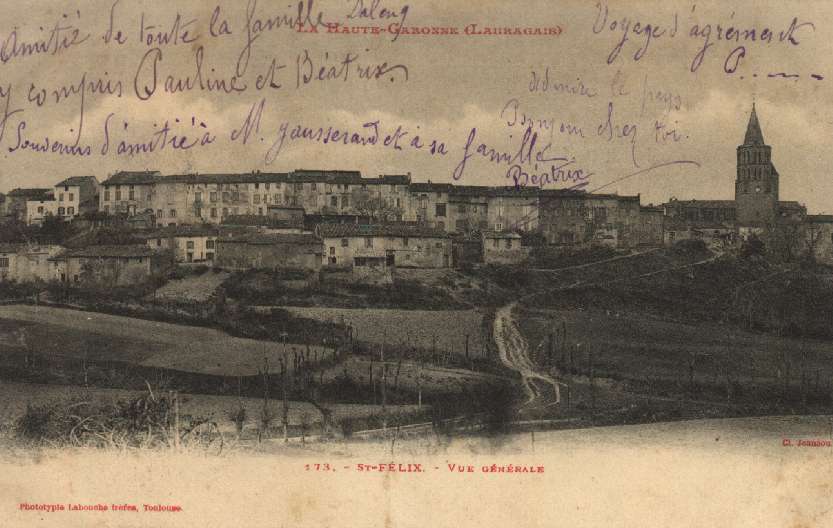 LA HAUTE-GARONNE (LAURAGAIS)
Amitié de toute la famille Daleng
y compris Pauline et Béatrix.
Souvenirs d'amitié à M. Jausserand et à sa famille
Béatrix
Voyage d'agrément
P
admire le pays
Bonjour chez toi.
Cl. Jeansou
173. - ST-FÉLIX. - VUE GÉNÉRALE
Phototypie Labouche frères, Toulouse.